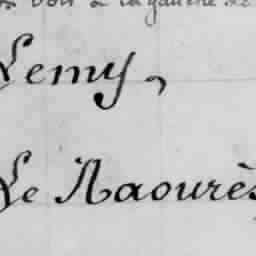 voit à la gauche de
Lemy,
Le Naourès